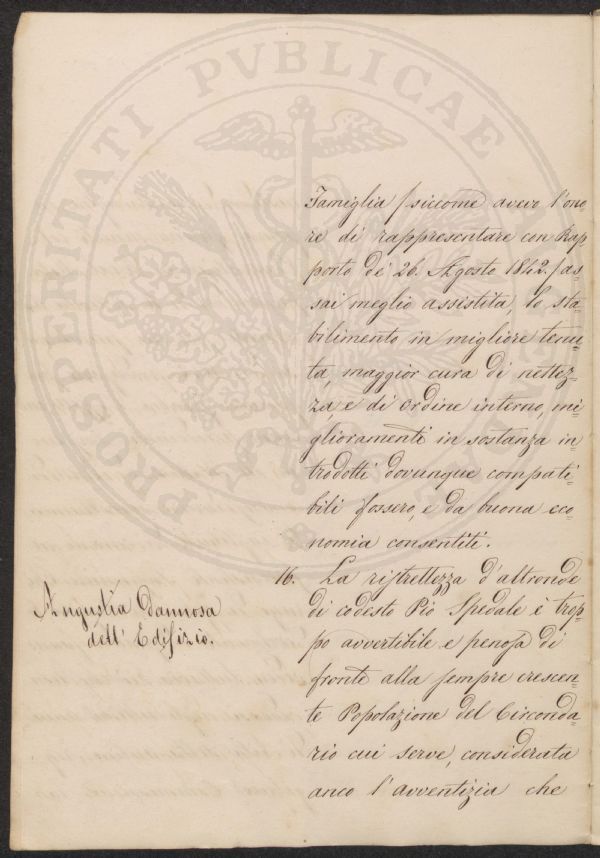 PROSPERITATI PVBLICAE
Famiglia / siccome avevo l'ono
re di rappresentare con Rap
porto de' 26. Agosto 1842. / as=
sai meglio assistita, lo sta=
bilimento in migliore tenu=
ta, maggior cura di nettez=
za, e di ordine interno, mi=
glioramenti in sostanza in=
trodotti dovunque compati=
bili fossero, e da buona eco=
nomia consentiti.
16. La ristrettezza d'altronde
di codesto Pio Spedale è trop=
po avvertibile e penosa di
fronte alla sempre crescen=
te Popolazione del Circonda=
rio cui serve, considerata
anco l'avventizia che
Angustia dannosa
dell' Edifizio.